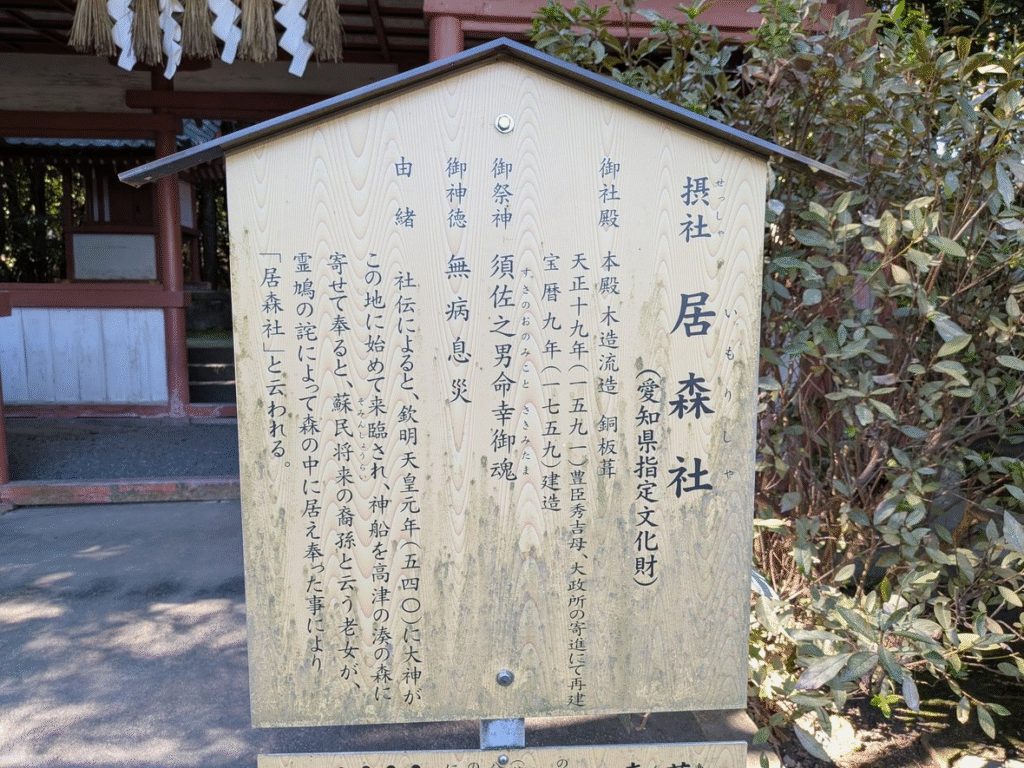 摂社 居森社
せっしゃ いもりしゃ
(愛知県指定文化財)
御社殿 本殿 木造流造 銅板葺
天正十九年(一五九一)豊臣秀吉母、大政所の寄進にて再建
宝暦九年(一七五九)建造
御祭神 須佐之男命幸御魂
すさのおのみこと さきみたま
御神徳 無病息災
由緒 社伝によると、欽明天皇元年(五四〇)に大神が
この地に始めて来臨され、神船を高津の湊の森に
寄せて奉ると、蘇民将来の裔孫と云う老女が、
そみんしょうらい
霊鳩の詫によって森の中に居え奉った事により
「居森社」と云われる。